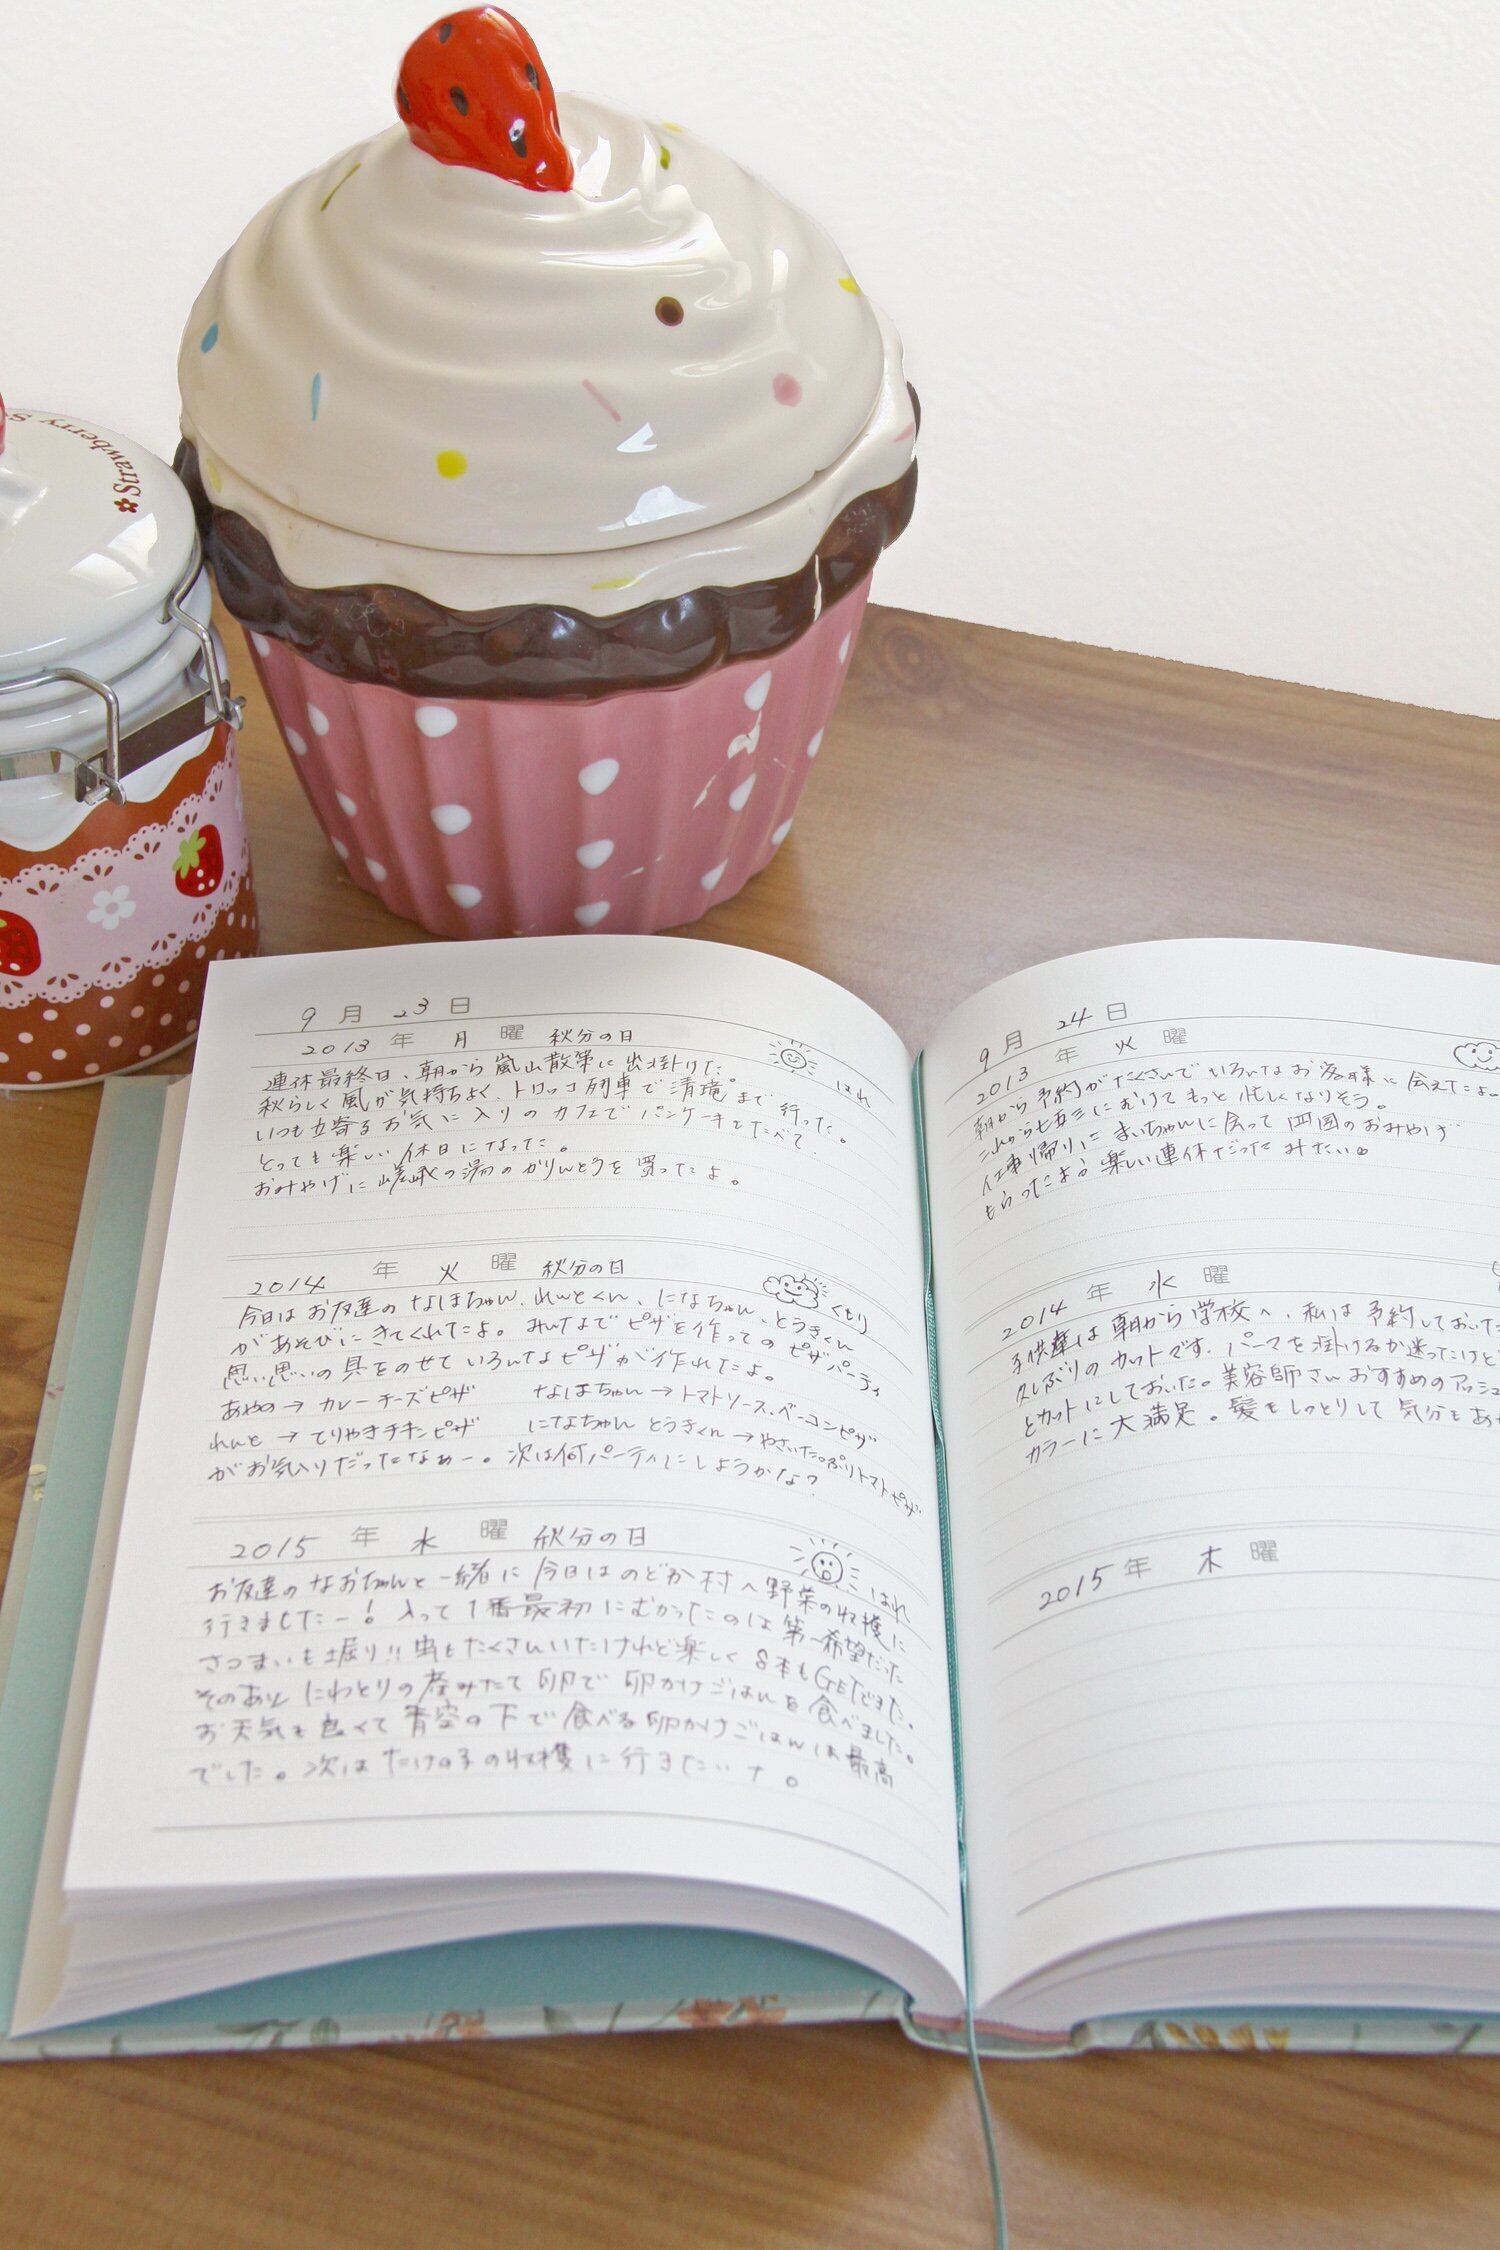 Strawberry S
9月23日
2013年 月曜 秋分の日
はれ
連休最終日、朝から嵐山散策に出掛けた。
秋らしく風が気持ちよく、トロッコ列車で清滝まで行った。
いつも立寄るお気に入りのカフェでパンケーキをたべて、
とっても楽しい休日になった。
おみやげに嵯峨の湯のかりんとうを買ったよ。
2014年 火曜 秋分の日
くもり
今日はお友達のなほちゃん、れんとくん、になちゃん、とうきくん
があそびにきてくれたよ。みんなでピザを作ってのピザパーティ
思い思いの具をのせていろんなピザが作れたよ。
あやの→カレーチーズピザ なほちゃん→トマトソース、ベーコンピザ
れんと→てりやきチキンピザ になちゃん とうきくん→やさいたっぷりトマトピザ
がお気入りだったなぁー。次は何パーティにしようかな?
2015年 水曜 秋分の日
はれ
お友達のなおちゃんと一緒に今日はのどか村へ野菜の収穫に
行きましたー!入って1番最初にむかったのは第一希望だった
さつまいも堀り!!虫もたくさんいたけれど楽しく8本もGETできた。
そのあと にわとりの産みたて卵で卵かけごはんを食べました。
お天気も良くて青空の下で食べる卵かけごはんは最高
でした。次はたけの子の収穫に行きたいナ。
9月24日
2013年 火曜
朝から予約がたくさんでいろんなお客様に会えたよ。
これから七五三にむけてもっと忙しくなりそう。
仕事帰りにまいちゃんに会って四国のおみやげ
もらったよる 楽しい連休だったみたい。
2014年 水曜
子供達は朝から学校へ、私は予約しておいた
久しぶりのカットです。パーマを掛けるか迷ったけど
とカットにしておいた。美容師さんおすすめのアッシュ
カラーに大満足。髪もしっとりして気分もあ
2015年 木曜